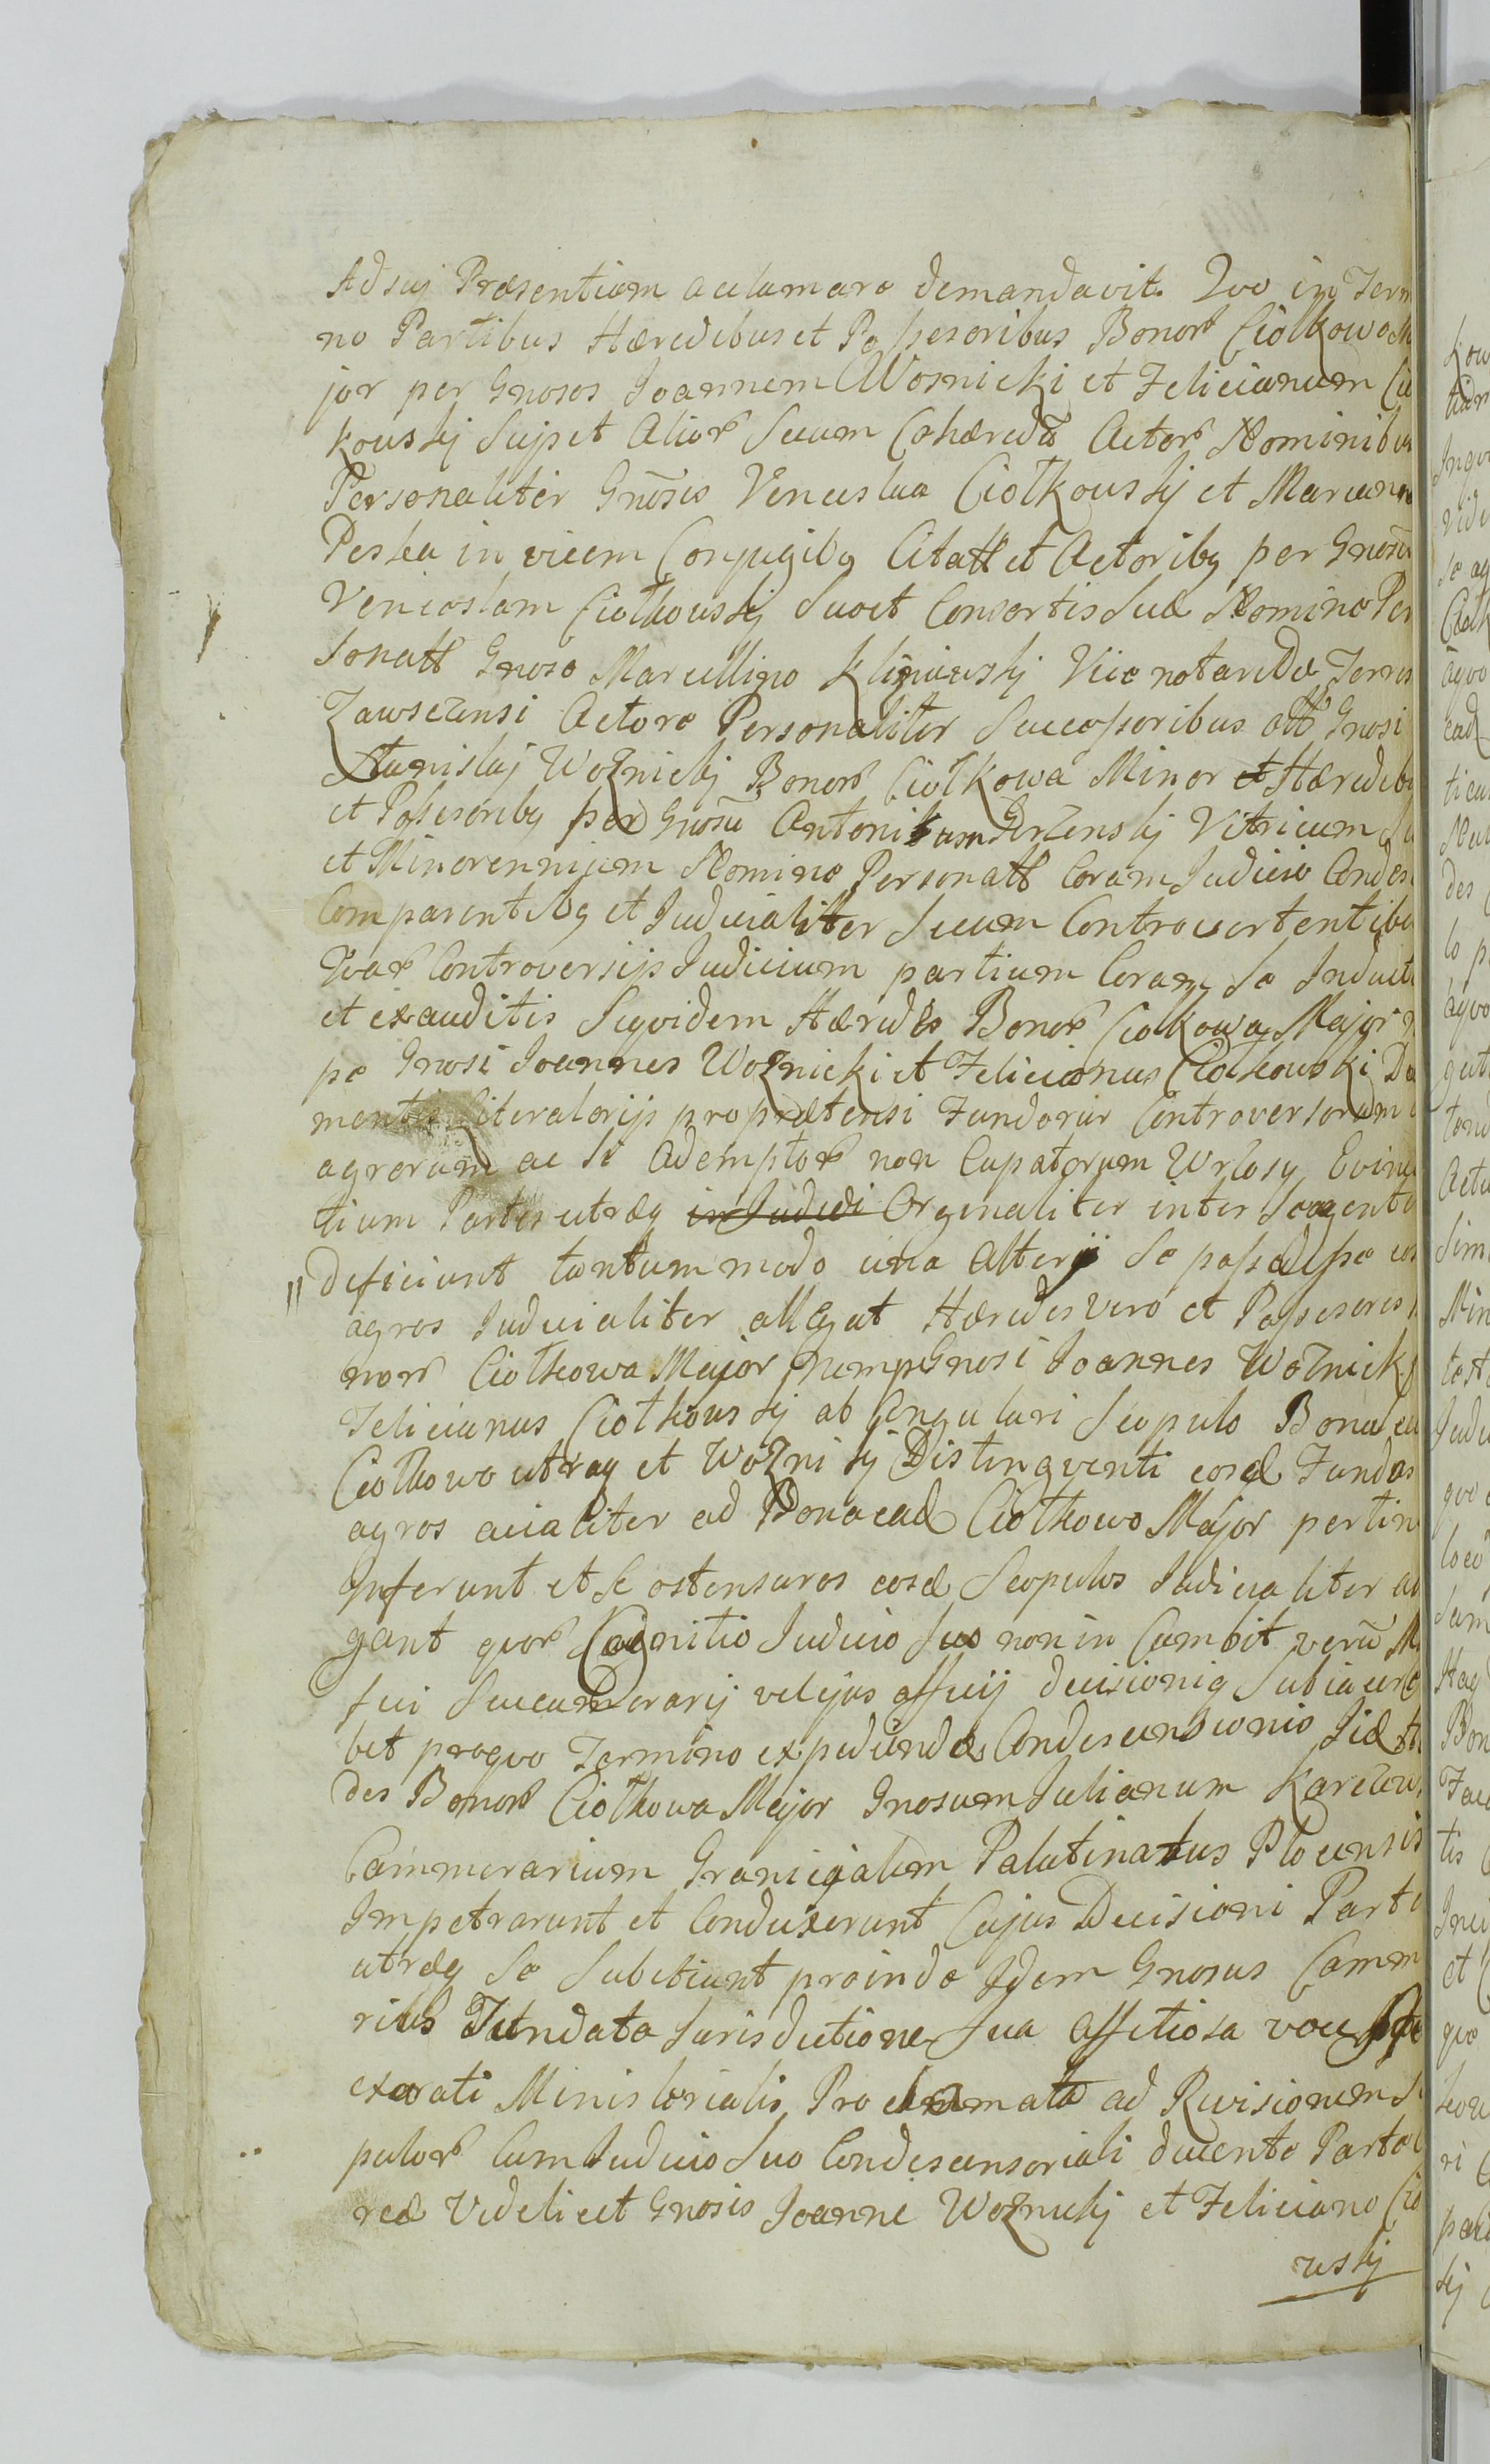 Ad sui Præsentiam acclamare demandavit. Quo in Term
no Partibus Hæredibus et Possesoribus Bonor Ciołkowo M
jor per Gnosos Joannem Woznicki et Felicianum Cio
kouskj Suj et Alior Secum Cohæredũ Actor Nominibus
Personaliter Gnõsis Venceslao Ciołkouskj et Marianna
Peska in vicem Conjugibq Citatt et Actoribq per Gnosũ
Venceslaum Ciołkouskj Suo et Consortis Suæ Nomine Per
sonatt Gnoso Marcellino Kliniewskj Vice notario Terres
Zawscrensi Actore Personaliter Successoribus ott Gnosi
Stanislaj Woznickj Bonor Ciołkowa Minor et Hæredeb
et Possesoribq per Gnosũ Antonium Gerzenskj Vitricum
et Minorennium Nomine Personatt Coram Judicio Condes
Comparentibq et Judicialiter Secum Controvertentibu
Quar Controversijs Judicium partium Coram Se Induct
et exauditis Siqvidem Hæredes Bonor Ciołkowa Major
pe Gnosi Joannes Woznicki et Felicianus Ciołkouski Do
mentis literatorijs pro prætensi Fundorur Controversorum
agrorum ac si Ademptor non Cupatorum Wrlosy Evine
tium Partes utræq in Judici Orginaliter inter Se agente
Deficiunt tantummodo una Alterij Se possedisse eos
agros Judicialiter allegat Hæredes vero et Possesores
nor Ciołkowa Major nempe Gnosi Joannes Woznickj
Felicianus Ciołkouskj ab Angulari Scopulo Bona ea
Ciołkowo utraq et Woznikj Distinqventi eosd Fundos
agros acialiter ad Bona ead Ciołkowo Major pertin
Inferunt et Se ostensuros eosd Scopulos Judicialiter al
gant quor Cognitio Judicio Suo non in Cumbit verũ M
fici Succamerarij vel ejus officij decisioniq Subiacere
bet proquo Termino expediendæ Condescensionis Iid
des Bonor Ciołkowa Major Gnosum Julianum Karczew
Cammerarium Granicialem Palatinatus Plocensis
Impetrarunt et Conduxerunt Cujus Decisioni Parte
utræq Se Subitiunt proinde Idem Gnosus Camm
rius Fundata Jurisdictione Sua Offitiosa voce
exarati Ministerialis Proclamata ad Revisionem S
pulor Cum Judicio Suo Condescensoriali ducente Parte
rea Videlicet Gnosis Joanne Woznickj et Feliciano Cio
uskj